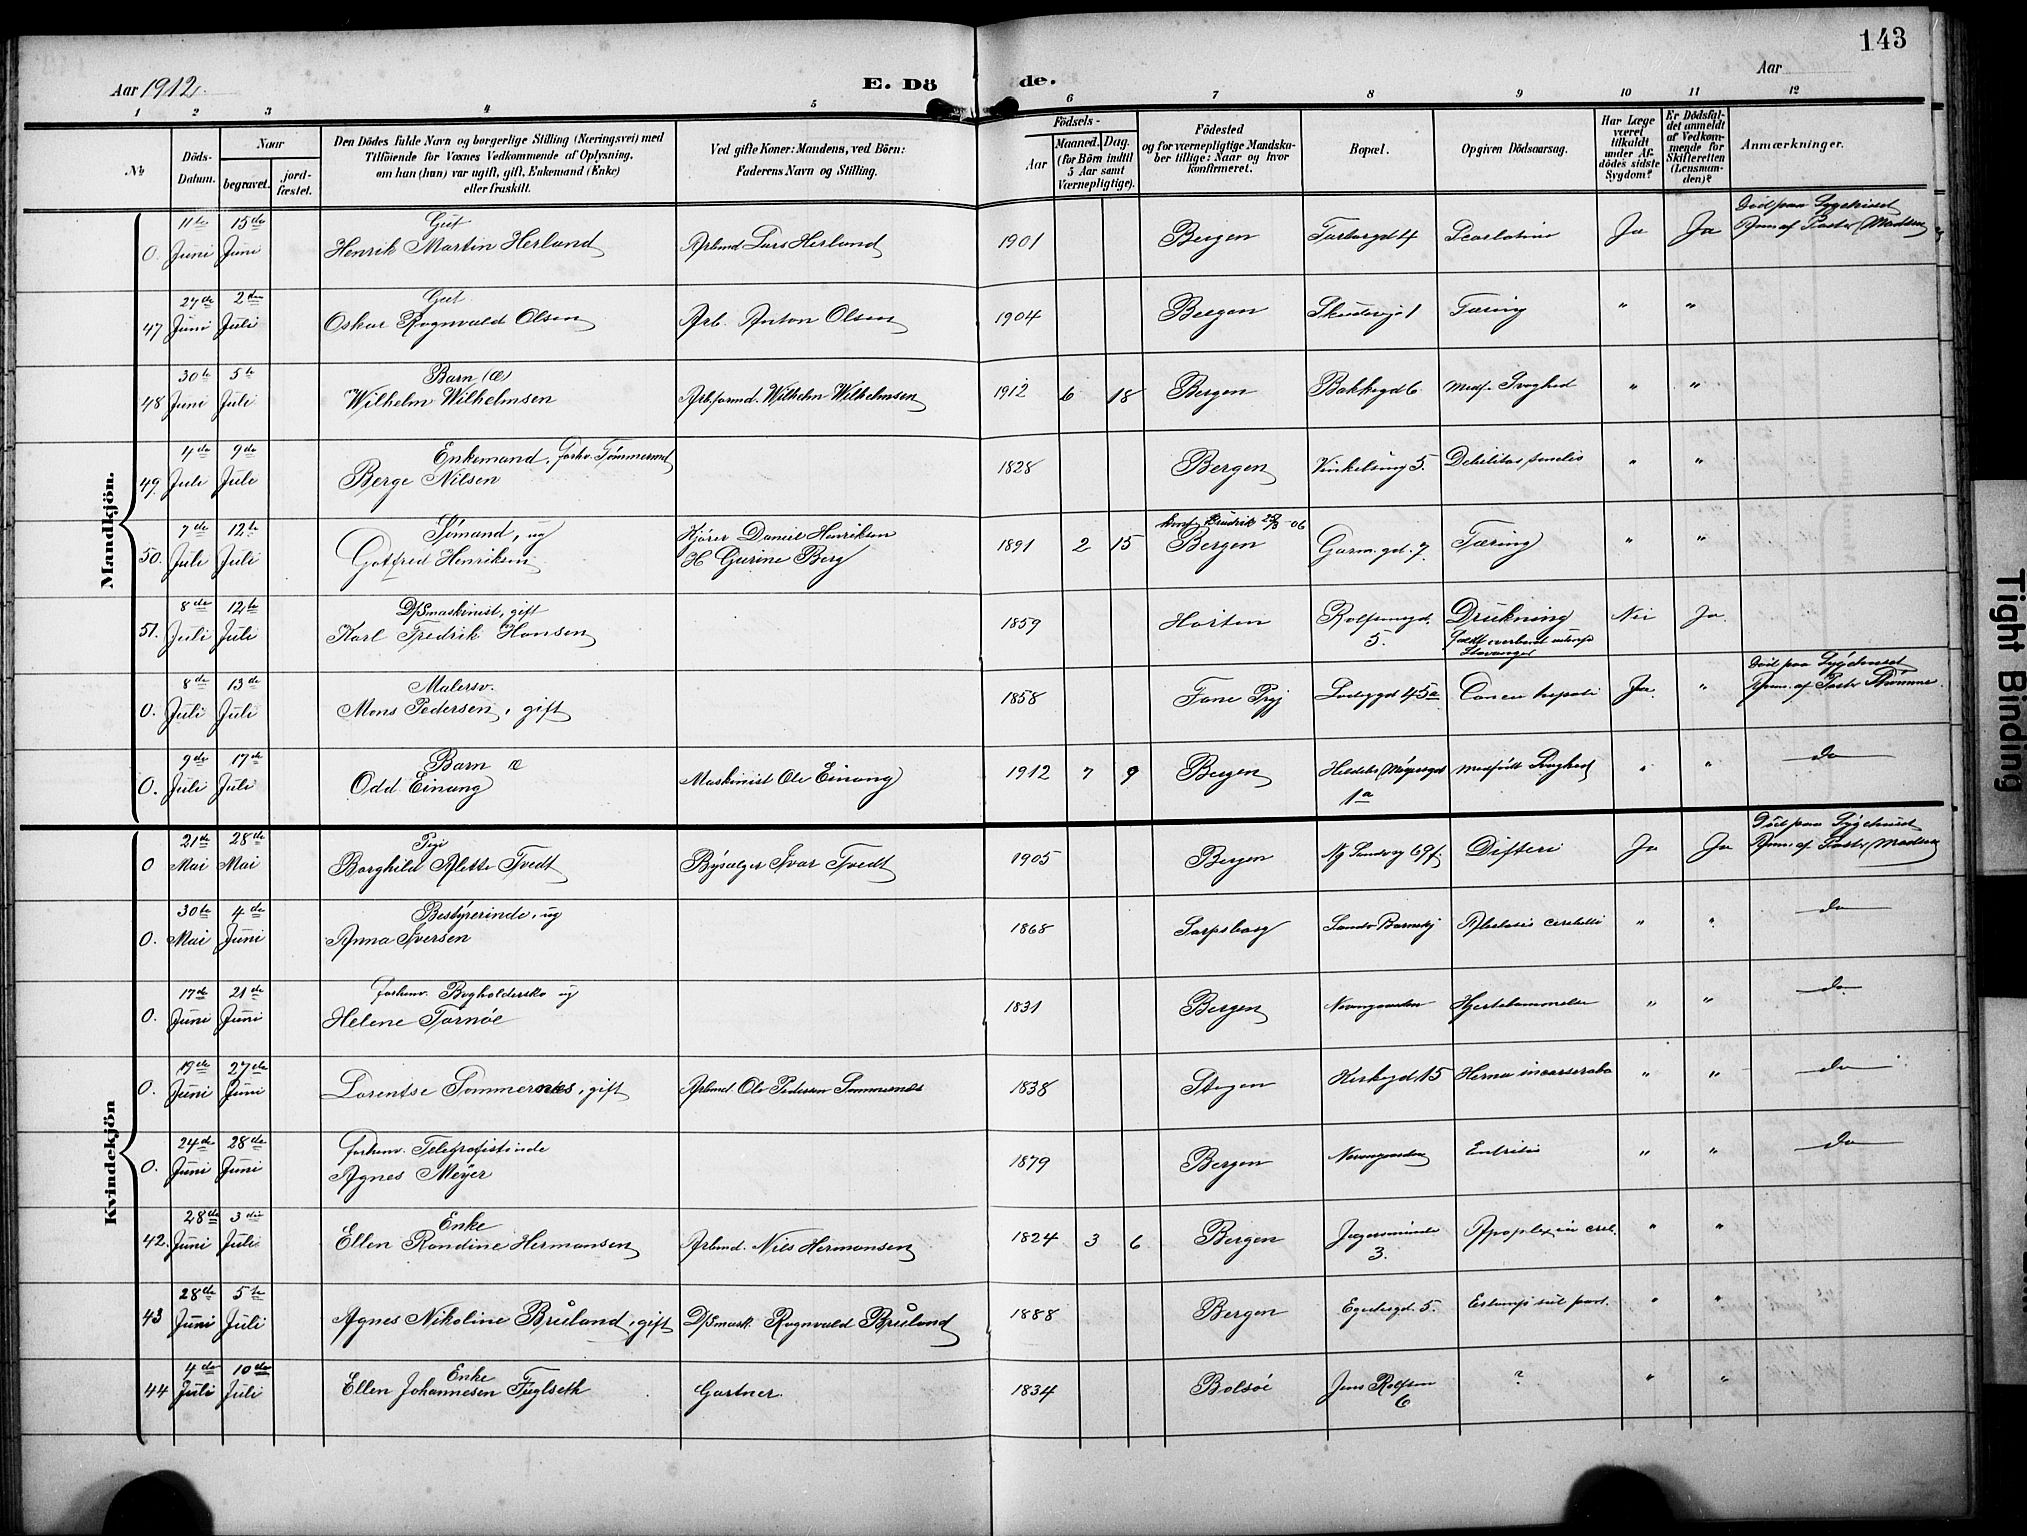 143
Aar 1912.
E. Dö de.
Aar
1 2 3 4 5 6 7 8 9 10 11 12
№
Döds-Datum.
Naar
begravet.
jord-fæstet.
Den Dödes fulde Navn og borgerlige Stilling (Næringsvei) med
Tilföiende for Voxnes Vedkommende af Oplysning,
om han (hun) var ugift, gift, Enkemand (Enke)
eller fraskilt.
Ved gifte Koner: Mandens, ved Börn:
Faderens Navn og Stilling.
Födsels-
Aar
Maaned. Dag.
(for Börn indtil
5 Aar samt
Værnepligtige).
Födested
og for værnepligtige Mandska-
ber tillige: Naar og hvor
konfirmeret.
Bopæl.
Opgiven Dödsaarsag.
Har Læge
været
tilkaldt
under Af-
dödes sidste
Sygdom?
Er Dödsfal-
det anmeldt
af Vedkom-
mende for
Skifteretten
(Lensman-
den)?
Anmærkninger.
Mandkjön.
0. 11te Juni 15de Juni Gut
Henrik Martin Herland Arbmd Lars Herland 1901 Bergen Torborgd 4 Scarlatina Ja Ja Död paa Sygehuset
Anm. af Pastor Madsen
47 27de Juni 2den Juli Gut
Oskar Rognvald Olsen Arb. Anton Olsen 1904 Bergen Skudevig 1 Tæring " "
48 30te Juni 5te Juli Barn
Wilhelm Wilhelmsen Arb.formd. Wilhelm Wilhelmsen 1912 6 18 Bergen Bakkegd 6 Medf. Svaghed " "
49. 4de Juli 9de Juli Enkemand, forhv. Tømmermd
Berge Nilsen 1828 Bergen Vinkelsmug 5. Debilitas senilis " "
50. 7de Juli 12te Juli Sømand, ug
Gotfred Henriksen Kjører Daniel Henriksen
H Gurine Berg 1891 2 15 Bergen Garm. gd. 7 Tæring " "
51. 8de Juli 12te Juli D/Smaskinist, gift
Karl Fredrik Hansen 1859 Horten Rolfsensgd.
5. Drukning
faldt overbord
Stavanger Nei Ja.
0. 8de Juli 13de Juli Malersv.
Mons Pedersen, gift 1858 Fane Prgj 45a Cancer hepatis Ja. " Död paa Sygehuset
Anm. af Pastor
0. 9de Juli 17de Juli Barn
Odd Einang Maskinist Ole Einang 1912 7 9 Bergen
1a Medfödt Svaghed " " do
Kvindekjön
0 21de Mai 28de Mai Pige
Borghild Alette Tvedt Bysælger Ivar Tvedt 1905 Bergen Ny Sandvig 69f. Difteri Ja Ja Död paa Sygehuset
Anm. af Pastor Madsen
0. 30te Mai 4de Juni Bestyrerinde, ug
Anna Iversen 1868 Sarpsborg cerebelli " " do
0. 17de Juni 21de Juni forhenv. Bogholderske ug
Helene Tornöe 1831 Bergen Nevengaarden Hjertelammelse " " do
0. 19de Juni 27de Juni
Lorentse Sommernes, gift Arbmd. Ole Pedersen Sommernæs 1838 Stegen Kirkegd. 15 Hernia incarserata " " do
0. 24de Juni 28de Juni forhenv. Telegrafistinde
Agnes Meyer 1879 Bergen Nevengaarden Entritis " " do
42. 28de Juni 3die Juli Enke
Ellen Randine Hermansen Arbmd. Nils Hermansen 1824 3 6 Bergen
3. Apoplexia cereb. " "
43 28de Juni 5te Juli
Agnes Nikoline Bruland, gift D/Smask. Rognvald Bruland 1888 Bergen Egedesgd. 5. " "
44 4de Juli 10de Juli Enke
Ellen Johannesen Fuglseth Gartner. 1834 Bolsöe Jens Rolfsen
6 ? " "
Tight Binding